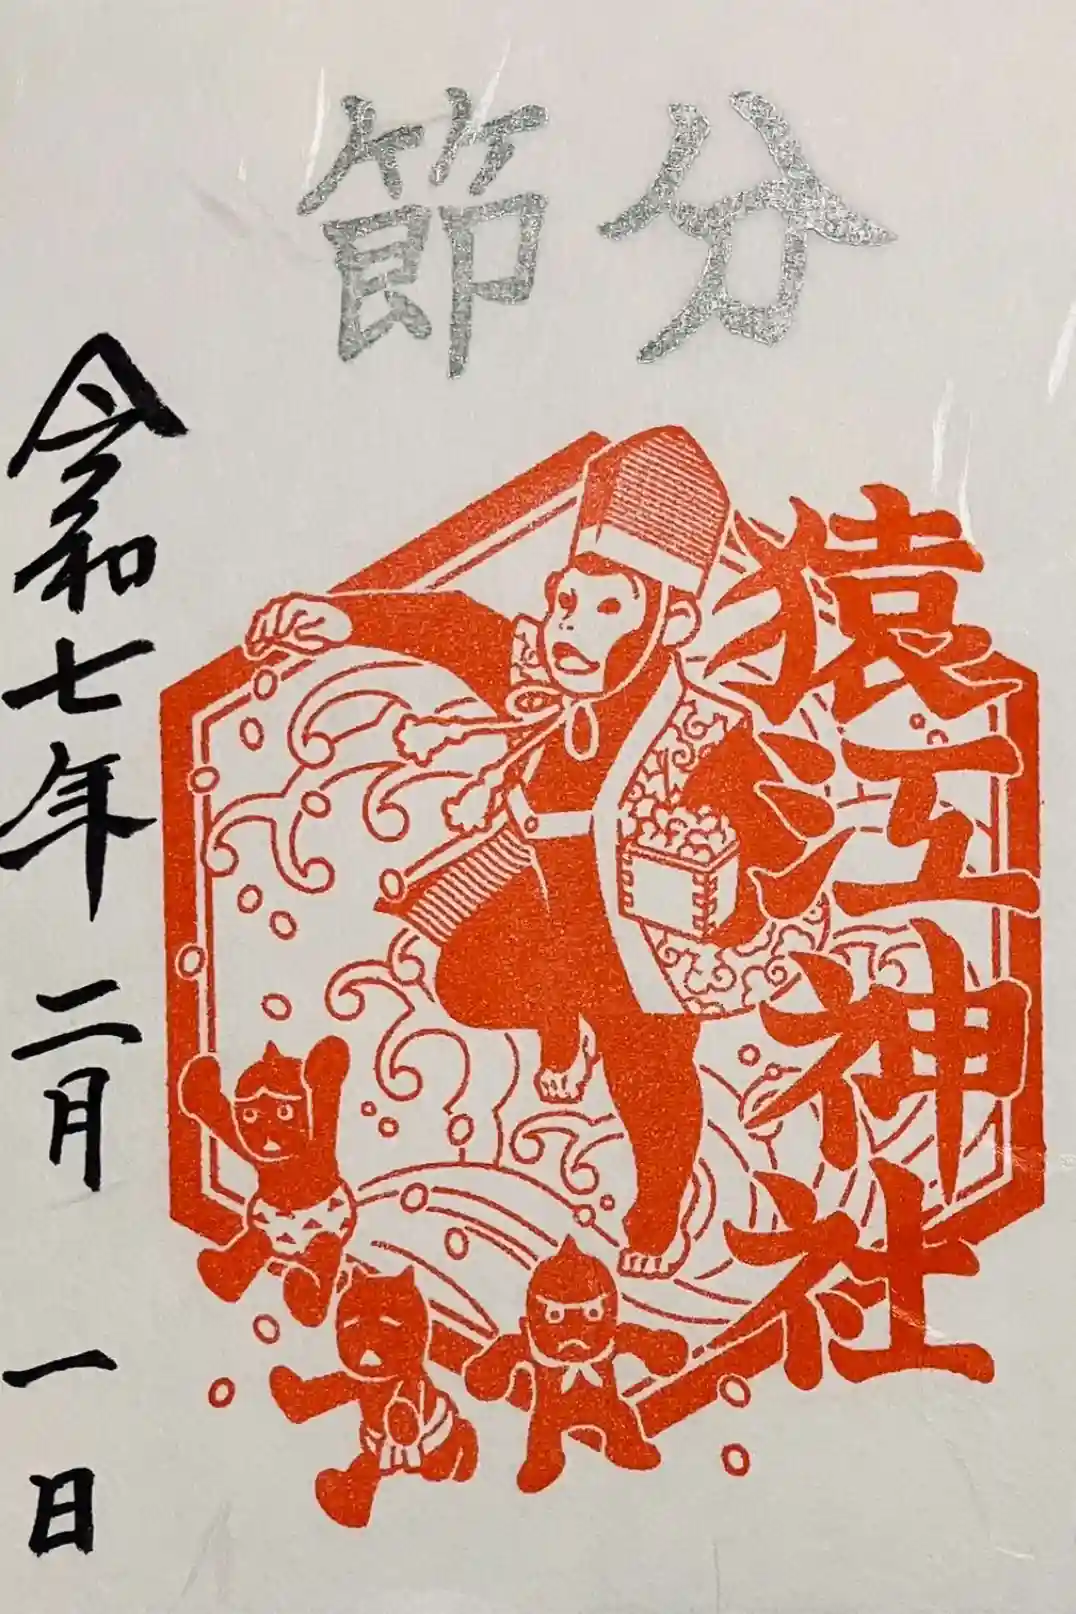 節分
猿江神社
令和七年二月一日